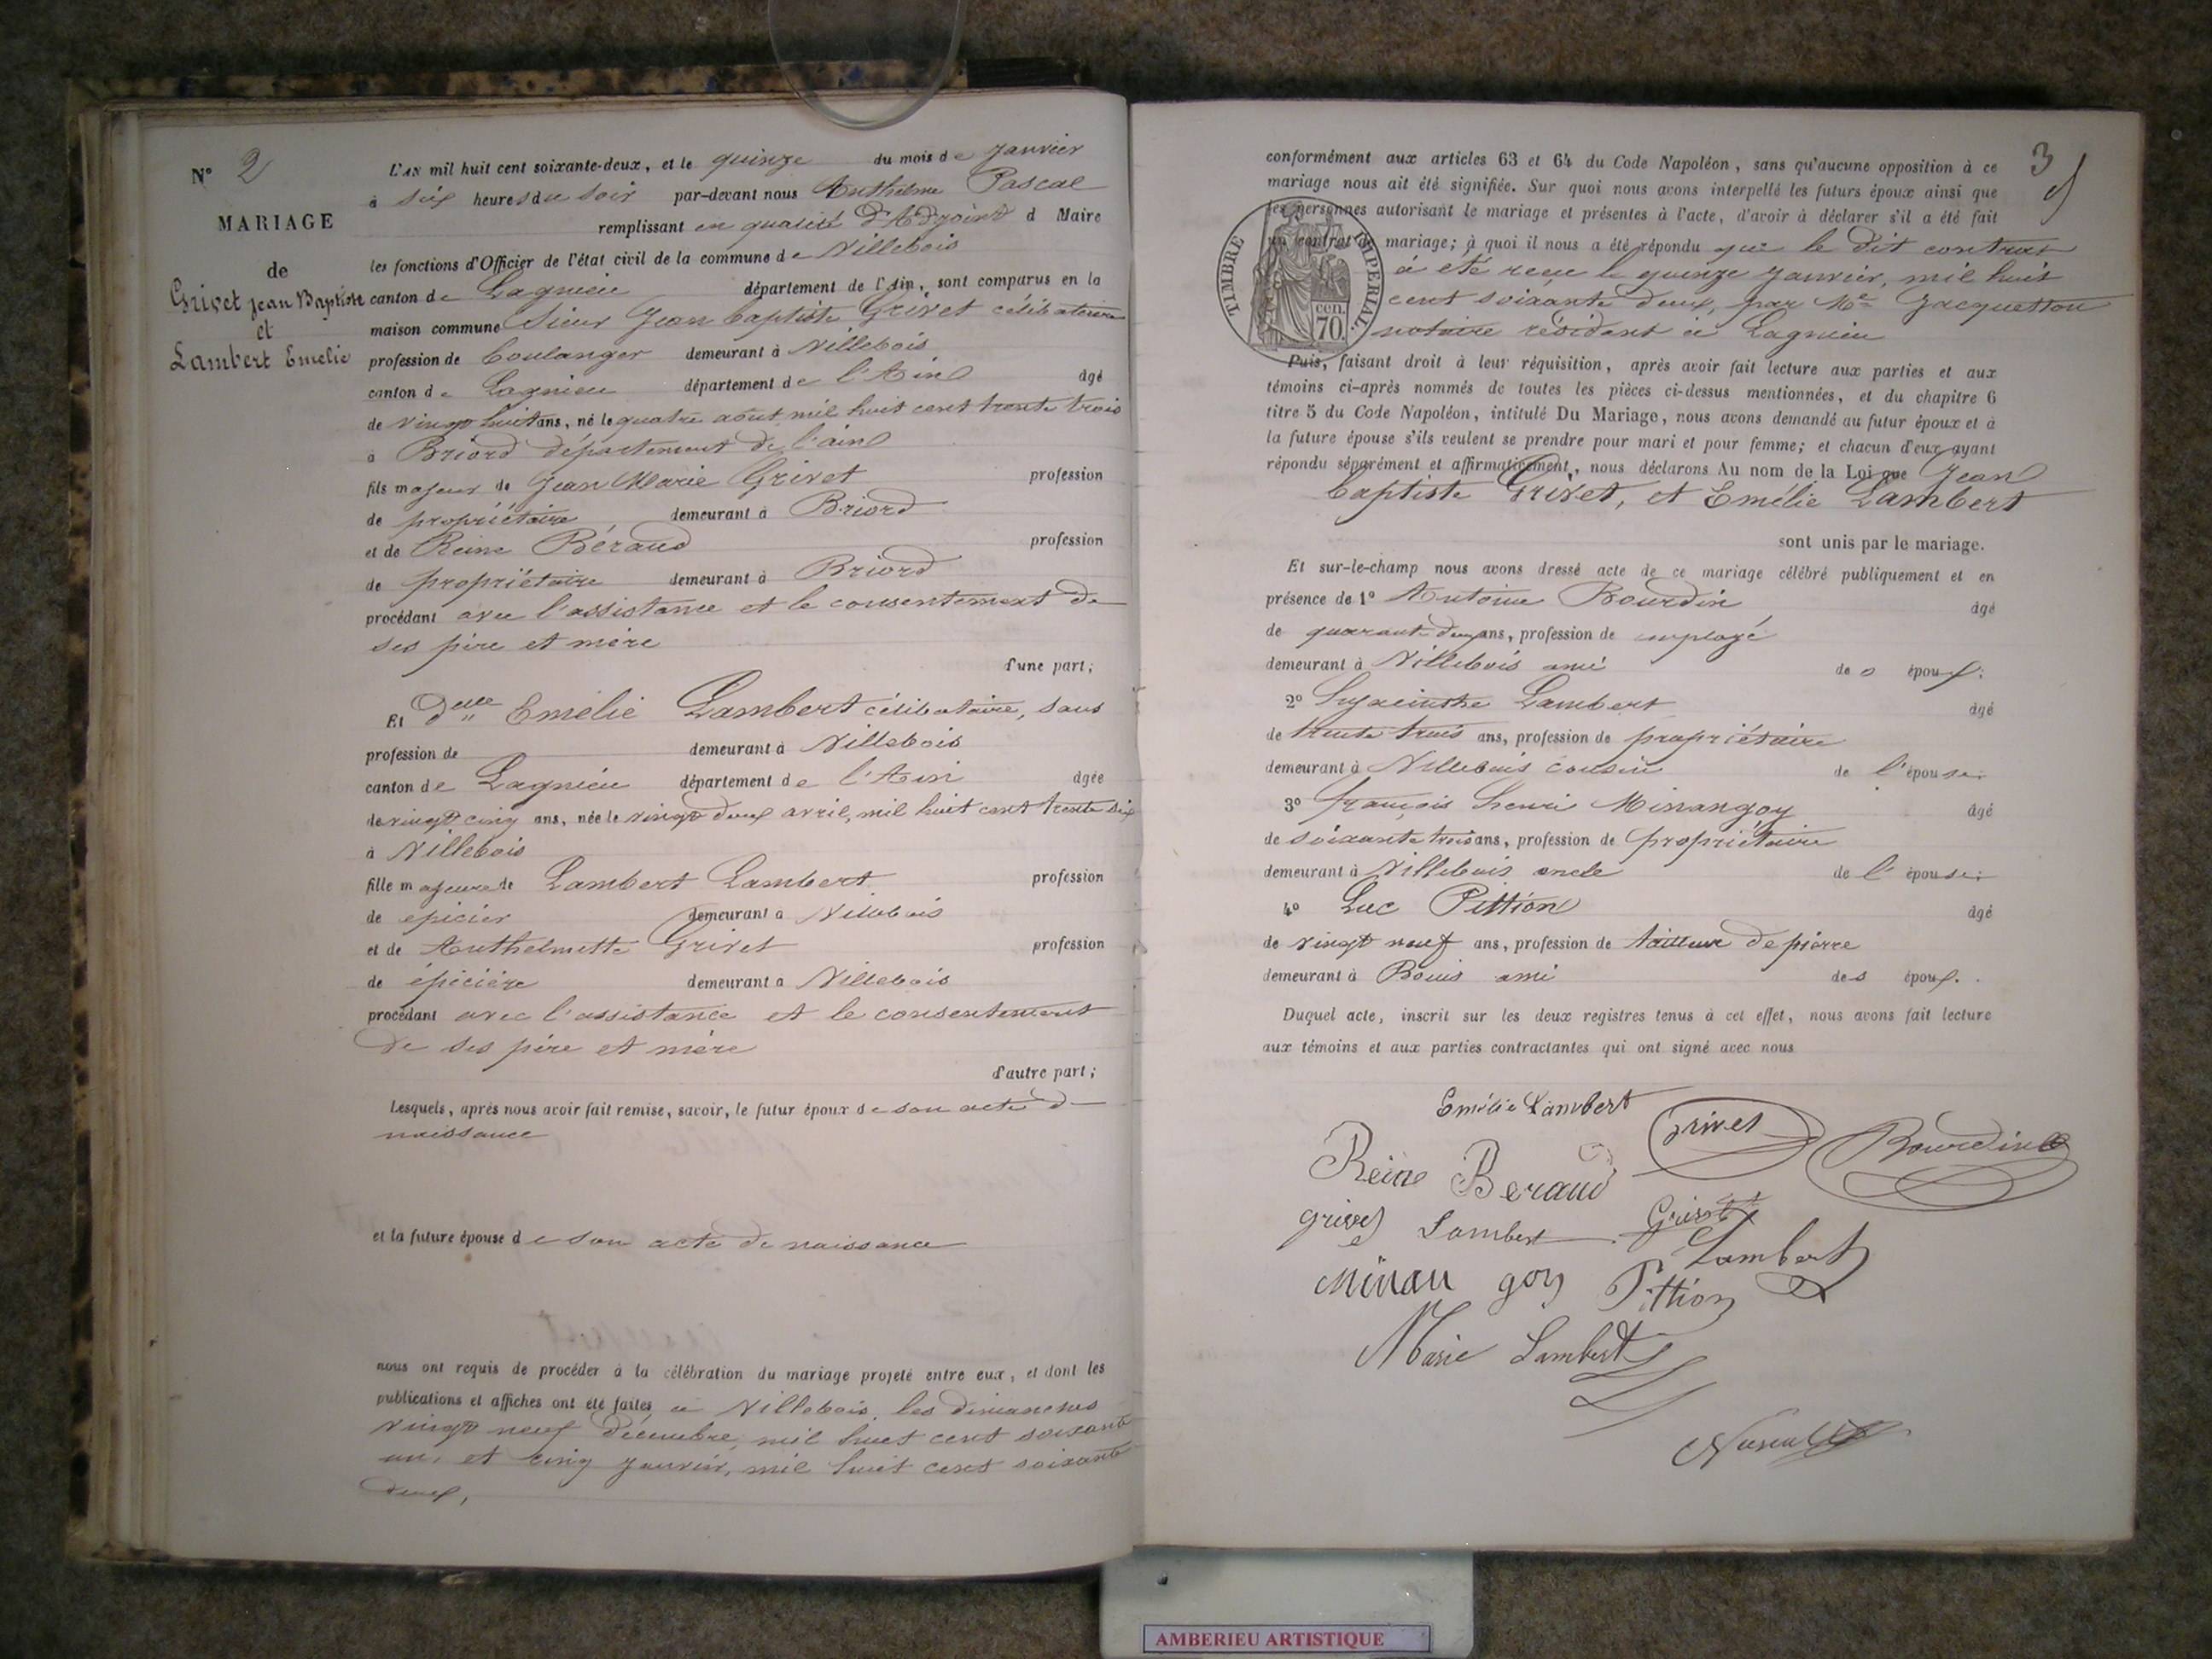 N° 2
MARIAGE
de
Grivet Jean Baptiste
et
Lambert Emelie
L'AN mil huit cent soixante-deux, et le quinze du mois de Janvier
à six heures du soir par-devant nous Anthelme Pascal
remplissant en qualité d'Adjoint d Maire
les fonctions d'Officier de l'état civil de la commune de Villebois
canton de Lagnieu département de l'Ain, sont comparus en la
maison commune Sieur Jean baptiste Grivet célibataire
profession de boulanger demeurant à Villebois
canton de Lagnieu département de l'Ain âgé
de vingt huit ans, né le quatre août mil huit cent trente trois
à Briord département de l'ain
fils majeur de Jean Marie Grivet profession
de propriétaire demeurant à Briord
et de Reine Béraud profession
de propriétaire demeurant à Briord
procédant avec l'assistance et le consentement de
ses père et mère
d'une part;
Et delle Emélie Lambert célibataire, sans
profession de demeurant à Villebois
canton de Lagnieu département de l'Ain âgée
de vingt cinq ans, née le vingt deux avril, mil huit cent trente six
à Villebois
fille majeure de Lambert Lambert profession
de epicier demeurant à Villebois
et de Anthelmette Grivet profession
de épicière demeurant à Villebois
procédant avec l'assistance et le consentement
de ses père et mère
d'autre part;
Lesquels, après nous avoir fait remise, savoir, le futur époux de son acte de
naissance
et la future épouse de son acte de naissance
nous ont requis de procéder à la célébration du mariage projeté entre eux, et dont les
publications et affiches ont été faites à Villebois, les dimanches
vingt neuf Décembre, mil huit cent soixante
un, et cinq janvier, mil huit cent soixante
deux,
3
conformément aux articles 63 et 64 du Code Napoléon, sans qu'aucune opposition à ce
mariage nous ait été signifiée. Sur quoi nous avons interpellé les futurs époux ainsi que
les personnes autorisant le mariage et présentes à l'acte, d'avoir à déclarer s'il a été fait
un contrat de mariage; à quoi il nous a été répondu que le dit contrat
à eté reçu le quinze janvier, mil huit
cent soixante deux, par Me Jacquetton
notaire résidant à Lagnieu
TIMBRE IMPERIAL.
cen.
70.
Puis, faisant droit à leur réquisition, après avoir fait lecture aux parties et aux
témoins ci-après nommés de toutes les pièces ci-dessus mentionnées, et du chapitre 6
titre 5 du Code Napoléon, intitulé Du Mariage, nous avons demandé au futur époux et à
la future épouse s'ils veulent se prendre pour mari et pour femme; et chacun d'eux ayant
répondu séparément et affirmativement, nous déclarons Au nom de la Loi que Jean
baptiste Grivet, et Emélie Lambert
sont unis par le mariage.
Et sur-le-champ nous avons dressé acte de ce mariage célébré publiquement et en
présence de 1° Antoine Bourdin âgé
de quarante deux ans, profession de employé
demeurant à Villebois ami des époux;
2° Hyacinthe Lambert âgé
de trente trois ans, profession de propriétaire
demeurant à Villebois cousin de l'épouse;
3° françois henri Minangoy âgé
de soixante trois ans, profession de propriétaire
demeurant à Villebois oncle de l'épouse;
4° Luc Pittion âgé
de vingt neuf ans, profession de tailleur de pierre
demeurant à Bouis ami des époux.
Duquel acte, inscrit sur les deux registres tenus à cet effet, nous avons fait lecture
aux témoins et aux parties contractantes qui ont signé avec nous
Emélie Lambert
Grivet
Bourdin
Reine Beraud
Grivet Lambert Grivet
Lambert
Minan goy Pittion
Marie Lambert
AMBERIEU ARTISTIQUE